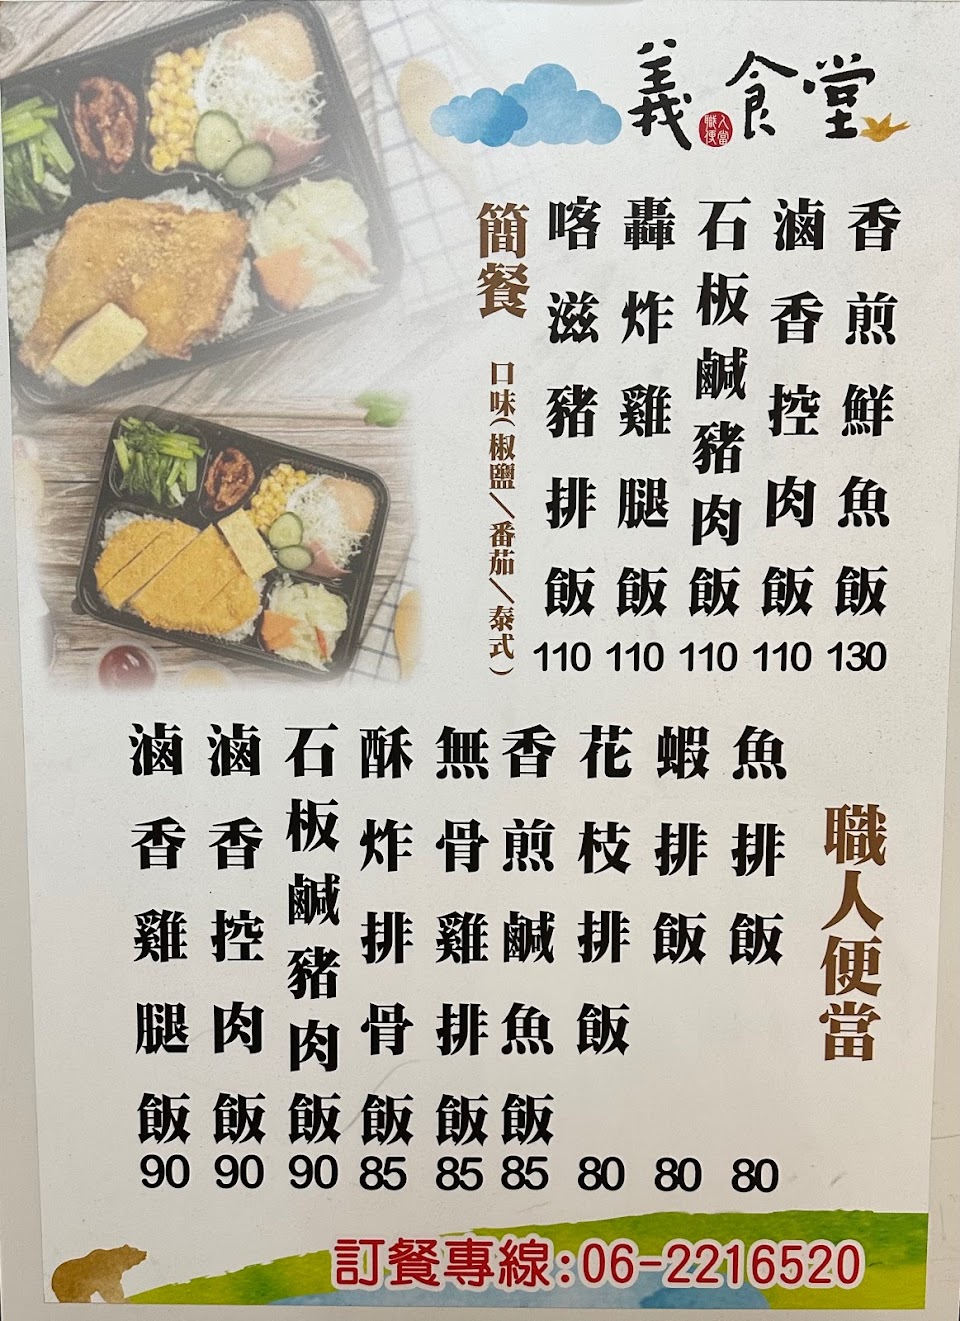 義食堂
職人便當
香煎鮮魚飯 130
滷香控肉飯 110
石板鹹豬肉飯 110
轟炸雞腿飯 110
喀滋豬排飯 110
簡餐
口味(椒鹽/番茄/泰式)
職人便當
魚排飯 80
蝦排飯 80
花枝排飯 80
香煎鹹魚飯 85
無骨雞排飯 85
酥炸排骨飯 85
石板鹹豬肉飯 90
滷香控肉飯 90
滷香雞腿飯 90
訂餐專線:06-2216520